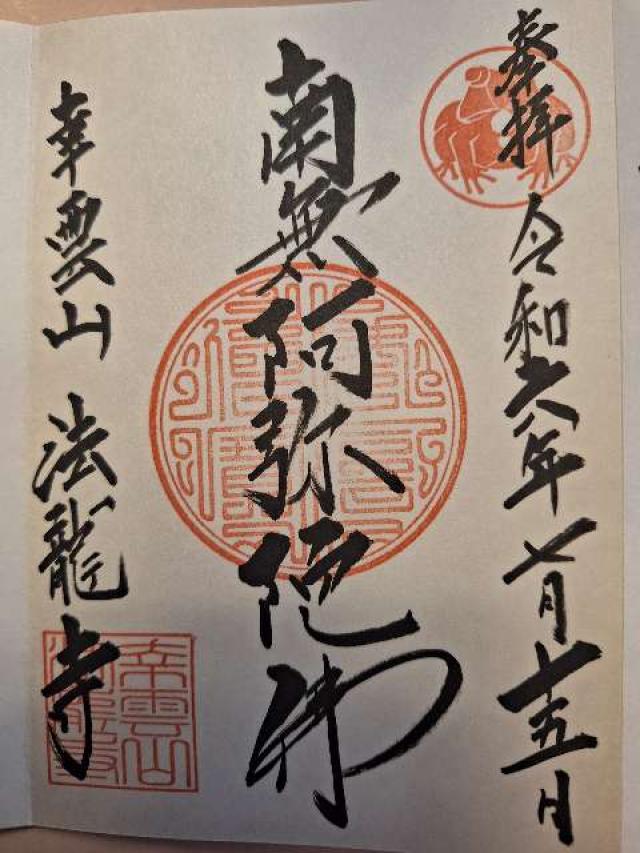 奉拝 令和六年七月十五日
南無阿弥陀佛
幸雲山 法龍寺
幸雲山
法龍寺